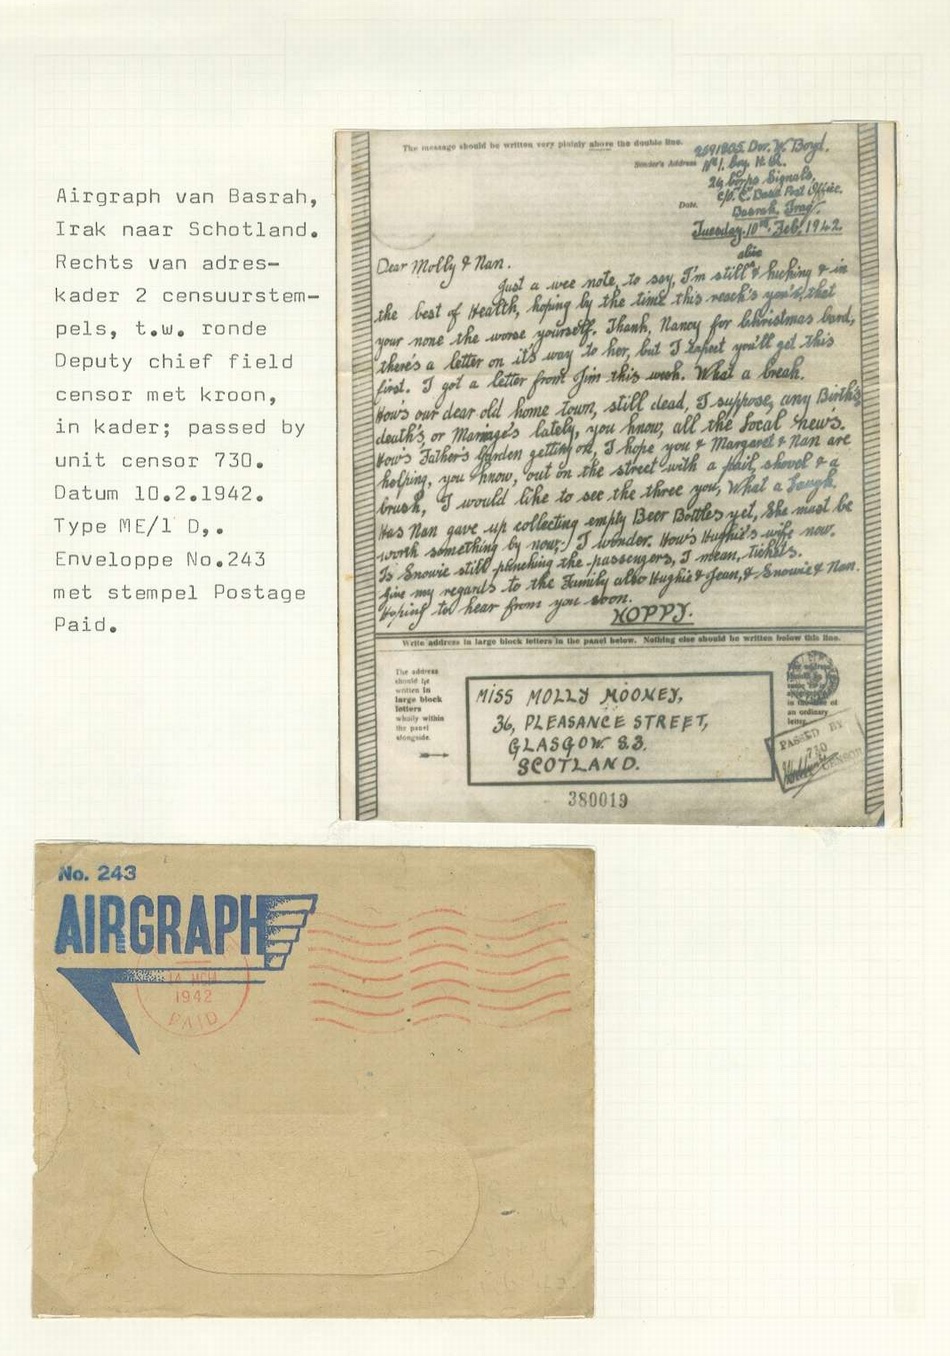 Airgraph van Basrah,
Irak naar Schotland.
Rechts van adres-
kader 2 censuurstem-
pels, t.w. ronde
Deputy chief field
censor met kroon,
in kader; passed by
unit censor 730.
Datum 10.2.1942.
Type ME/1 D,.
Enveloppe No.243
met stempel Postage
Paid.
The message should be written very plainly above the double line.
Sender's Address
2591805, Dvr. W. Boyd.
Nº1. Coy. H.Q.
Corps Signals,
Base Post Office.
Date.
Basrah, Iraq.
Tuesday. 10th. Feb. 1942.
alive
Dear Molly & Nan.
Just a wee note, to say, I'm still & kicking & in
the best of Health, hoping by the time this reach's you's, that
your none the worse yourself. Thank, Nancy for Christmas Card,
there's a letter on it's way to her, but I expect you'll get this
first. I got a letter from Jim this week. What a break.
How's our dear old home town, still dead, I suppose, any Birth's,
death's, or Marriage's lately, you know, all the Local news.
How's Father's Garden getting on, I hope you & Margaret & Nan are
helping, you know, out on the street with a pail, shovel & a
brush, I would like to see the three you, What a Laugh.
Has Nan gave up collecting empty Beer Bottles yet, She must be
worth something by now; I wonder. How's Hughie's wife now.
Is Snowie still punching the passengers, I mean, tickets.
Give my regards to the Family also Hughie & Jean, & Snowie & Nan.
Hoping to hear from you soon.
HOPPY.
Write address in large block letters in the panel below. Nothing else should be written below this line.
The address
should be
written in
large block
letters
wholly within
the panel
alongside.
MISS MOLLY MOONEY,
36, PLEASANCE STREET,
GLASGOW. S.3.
SCOTLAND.
of
an ordinary
letter.
PASSED BY
730
CENSOR
380019
No. 243
AIRGRAPH
1942
PAID